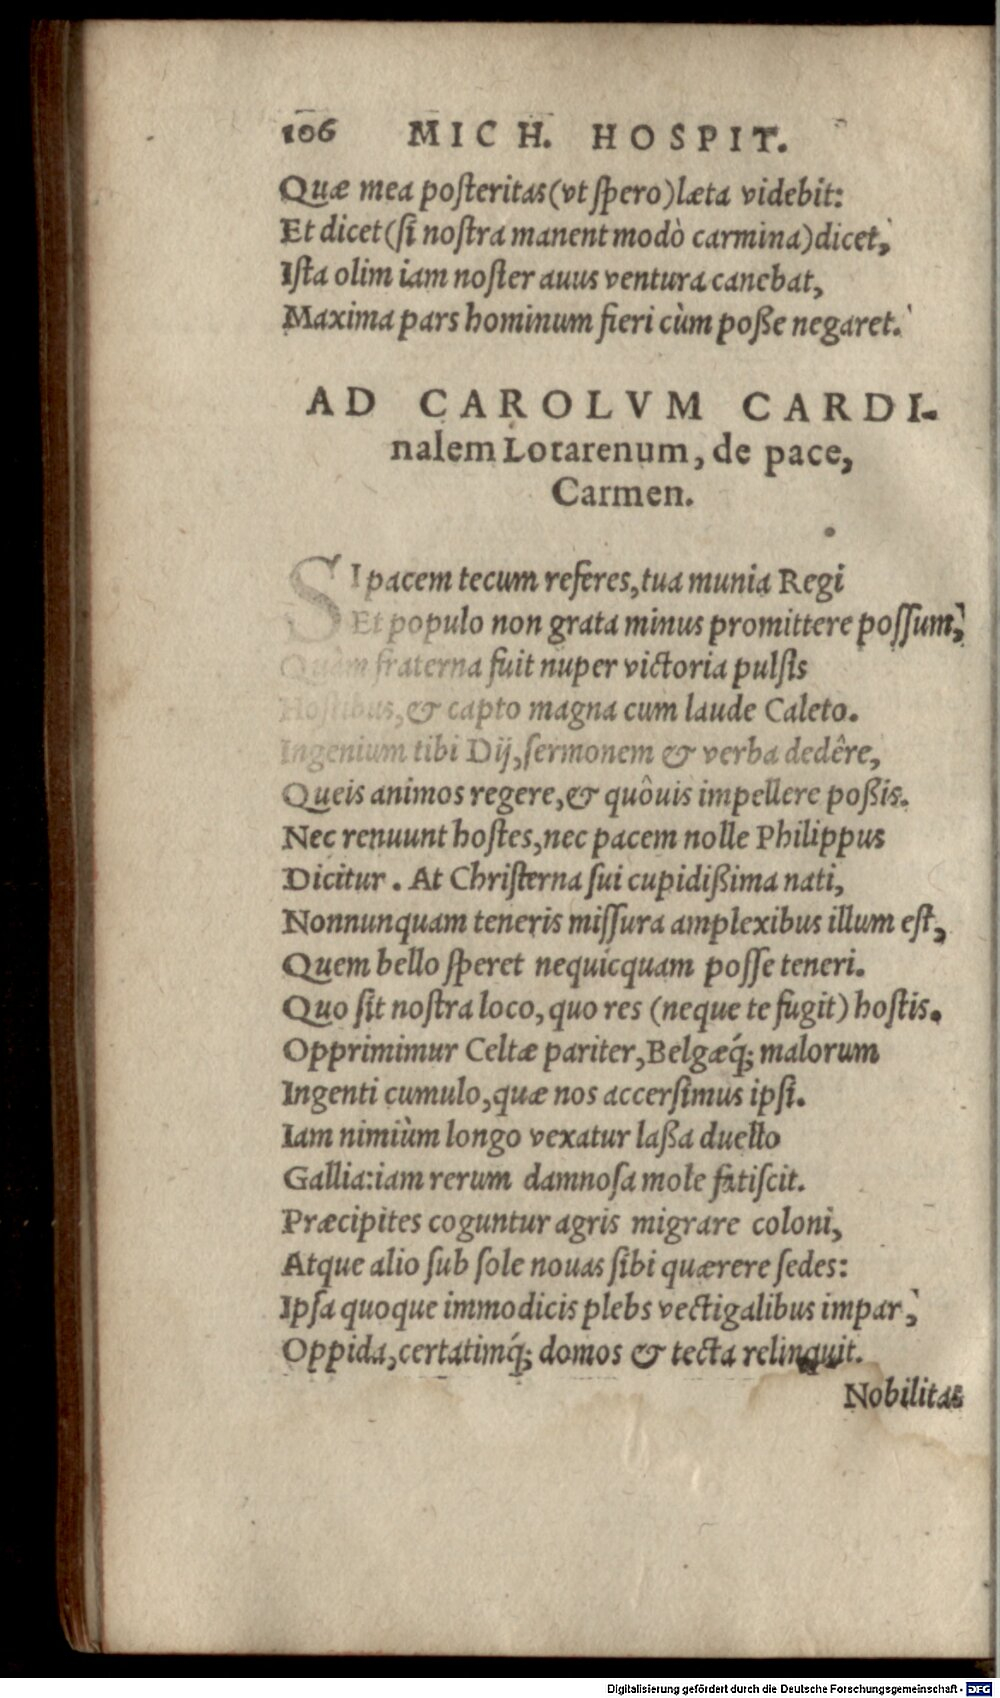 106 MICH. HOSPIT.
Quæ mea posteritas (vt spero) læta videbit:
Et dicet (si nostra manent modò carmina) dicet,
Ista olim iam noster auus ventura canebat,
Maxima pars hominum fieri cùm posse negaret.
AD CAROLVM CARDI-
nalem Lotarenum, de pace,
Carmen.
SI pacem tecum referes, tua munia Regi
Et populo non grata minus promittere possum,
Quàm fraterna fuit nuper victoria pulsis
Hostibus, & capto magna cum laude Caleto.
Ingenium tibi Dij, sermonem & verba dedêre,
Queis animos regere, & quôuis impellere possis.
Nec renuunt hostes, nec pacem nolle Philippus
Dicitur. At Christerna sui cupidissima nati,
Nonnunquam teneris missura amplexibus illum est,
Quem bello speret nequicquam posse teneri.
Quo sit nostra loco, quo res (neque te fugit) hostis.
Opprimimur Celtæ pariter, Belgæq́; malorum
Ingenti cumulo, quæ nos accersimus ipsi.
Iam nimiùm longo vexatur lassa duello
Gallia: iam rerum damnosa mole fatiscit.
Præcipites coguntur agris migrare coloni,
Atque alio sub sole nouas sibi quærere sedes:
Ipsa quoque immodicis plebs vectigalibus impar,
Oppida, certatimq́; domos & tecta relinquit.
Nobilitas
Digitalisierung gefördert durch die Deutsche Forschungsgemeinschaft - DFG